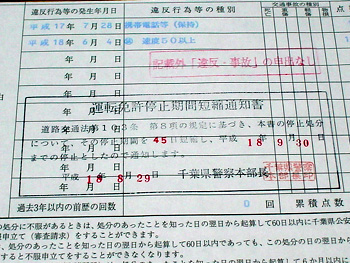 違反行為等の発生年月日 違反行為等の種別
平成17年7月28日 携帯電話等(保持)
平成18年6月4日 速度50以上
年 月 日
記載外「違反・事故」の申出なし
年 月 日
年 月 日
運転免許停止期間短縮通知書
道路交通法第103条 第8項の規定に基づき、本書の停止処分
について、その停止期間を45日短縮し、平成18.9.30
までの停止としたので通知します。
平成18.8.29 千葉県警察本部長
過去3年以内の前歴の回数 0回 累積点数
の処分に不服があるときは、処分のあったことを知った日の翌日から起算して60日以内に千葉県公安
申立て(審査請求)をすることができます。
処分のあったことを知った日の翌日から起算して60日以内であっても、この処分の日の翌日から
立てをすることができなくなります。